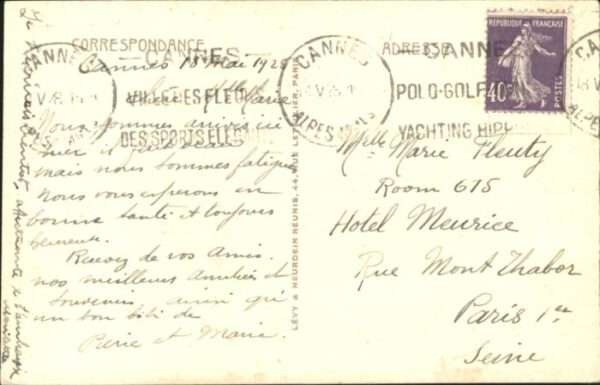 CORRESPONDANCE
Cannes 18 Mai 192
Chère Mlle Marie
Nous sommes arrivés
hier
mais nous sommes fatigués
nous vous espérons en
bonne santé et toujours
heureuse.
Recevez de vos Amis
nos meilleures Amitiés et
souvenirs ainsi qu'
un bon
Pierre et Marie.
bientôt,
LÉVY & NEURDEIN RÉUNIS, 44, RUE LETELLIER, PARIS
CANNES
ALPES
CANNES
VILLE DES FLEU
DES SPORTS ELEG
ADRESSE
CANNES
POLO-GOLF
YACHTING HIP
CANNES
RÉPUBLIQUE FRANÇAISE
40c
POSTES
Mlle Marie Pleuty
Room 615
Hotel Meurice
Rue Mont Thabor
Paris 1er
Seine